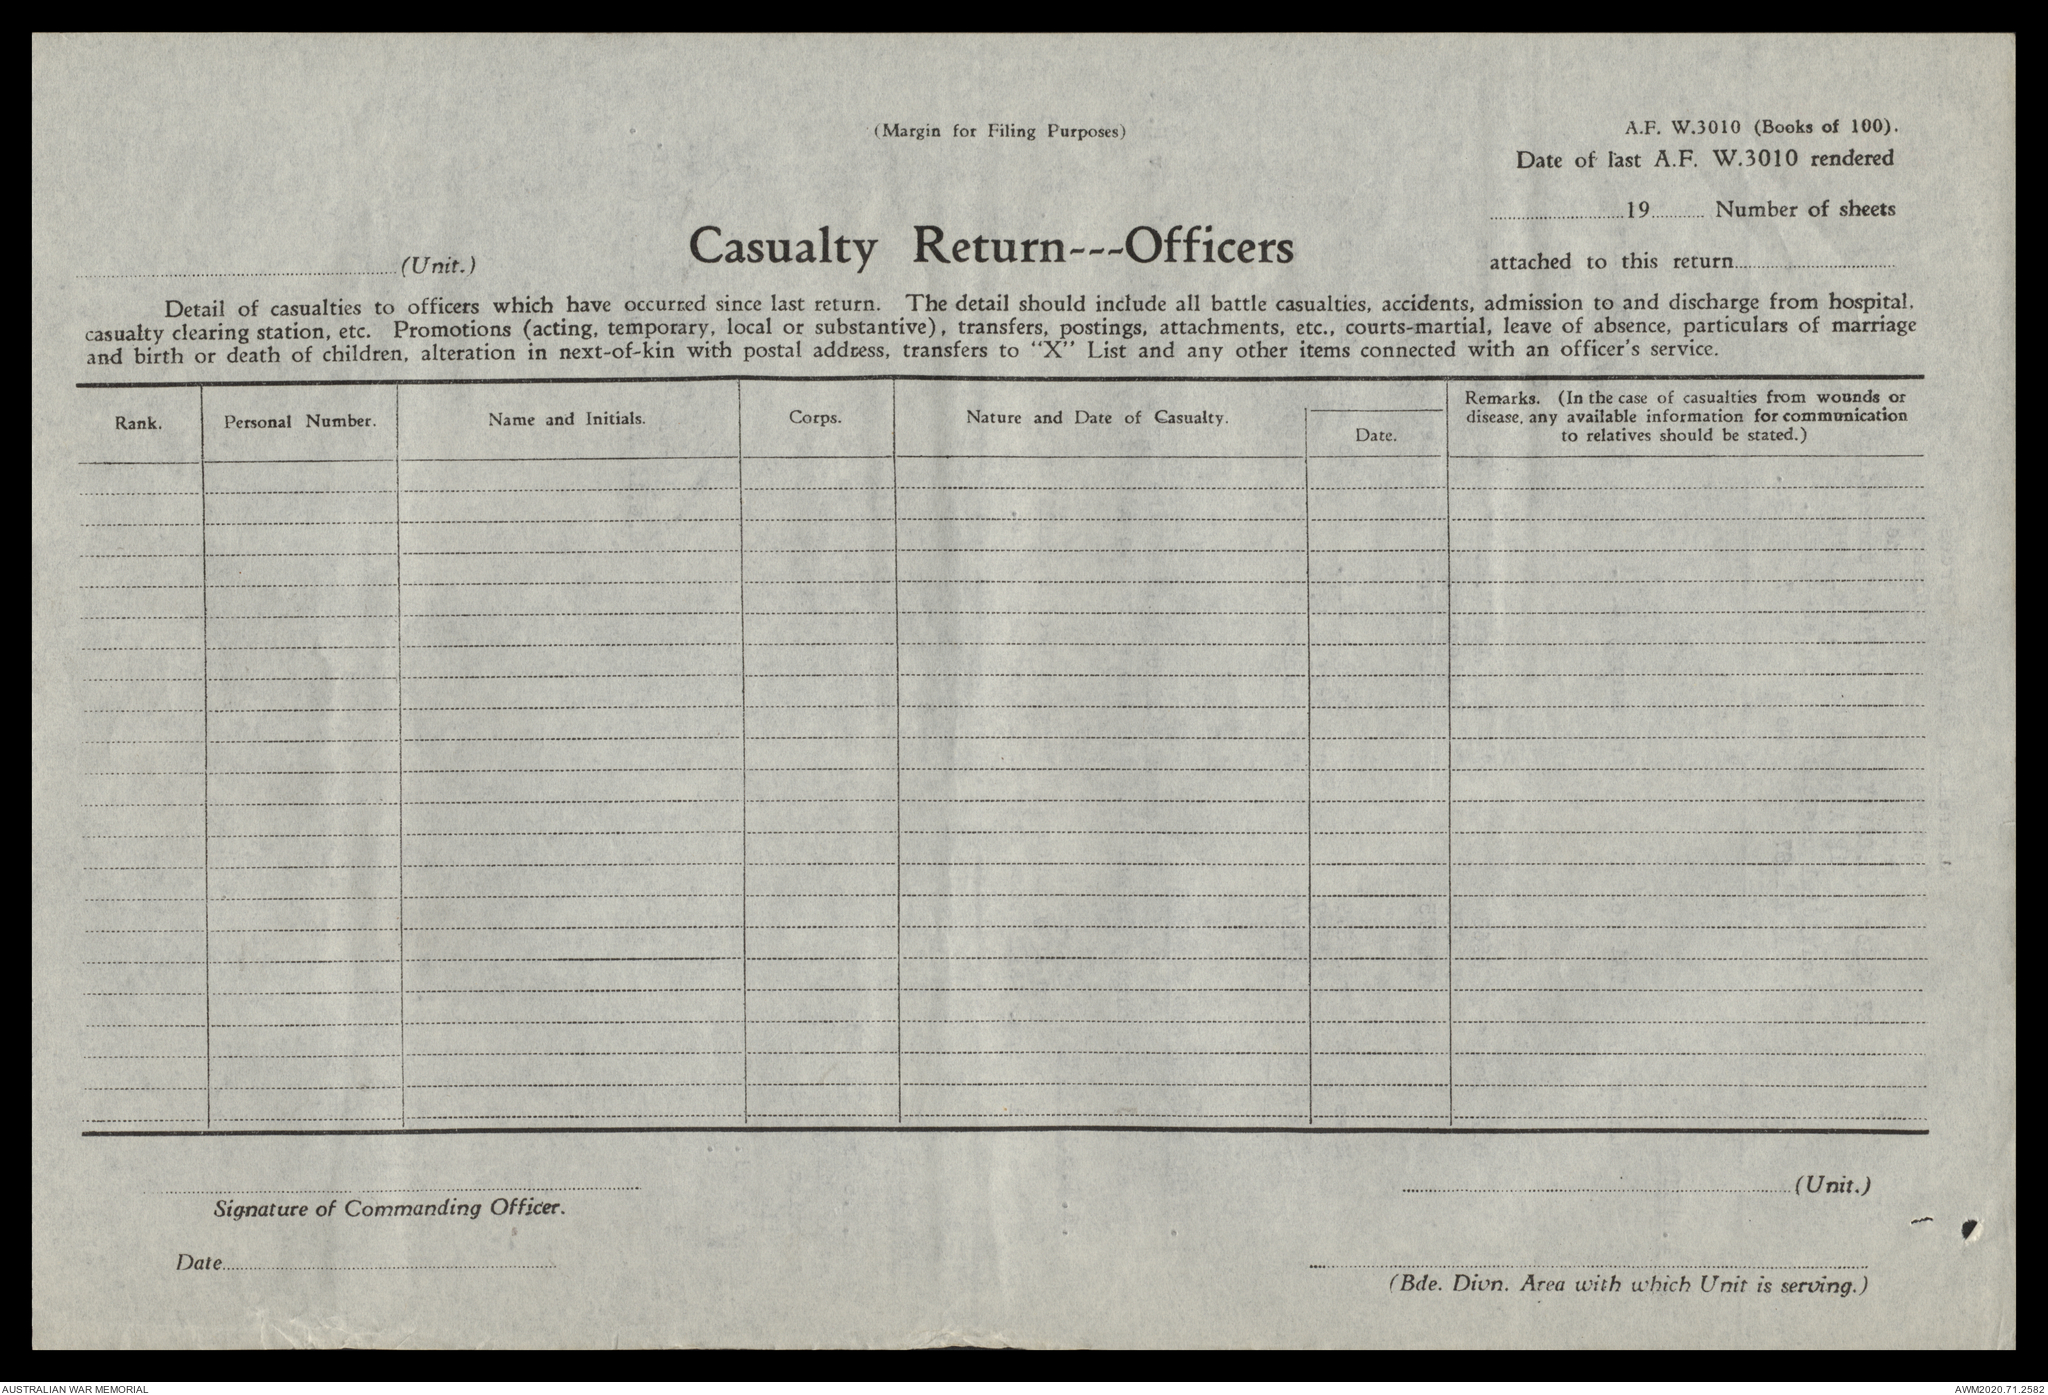 (Margin for Filing Purposes)
A.F. W.3010 (Books of 100).
Date of last A.F. W.3010 rendered
19 Number of sheets
attached to this return
(Unit.)
Casualty Return---Officers
Detail of casualties to officers which have occurred since last return. The detail should include all battle casualties, accidents, admission to and discharge from hospital,
casualty clearing station, etc. Promotions (acting, temporary, local or substantive), transfers, postings, attachments, etc., courts-martial, leave of absence, particulars of marriage
and birth or death of children, alteration in next-of-kin with postal address, transfers to "X" List and any other items connected with an officer's service.
Rank.
Personal Number.
Name and Initials.
Corps.
Nature and Date of Casualty.
Date.
Remarks. (In the case of casualties from wounds or
disease, any available information for communication
to relatives should be stated.)
Signature of Commanding Officer.
(Unit.)
Date
(Bde. Divn. Area with which Unit is serving.)
AUSTRALIAN WAR MEMORIAL
AWM2020.71.2582